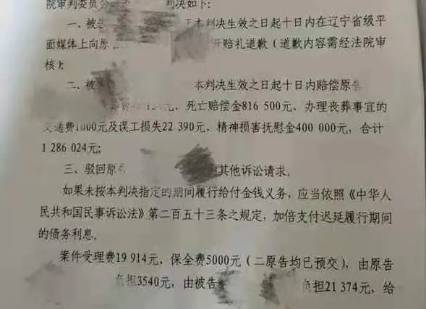 院审判委员会 判决如下:
一、被 本判决生效之日起十日内在辽宁省级平
面媒体上向原 开赔礼道歉(道歉内容需经法院审
核);
二、被 本判决生效之日起十日内赔偿原告
元、死亡赔偿金816 500元、办理丧葬事宜的
交通费1000元及误工损失22 390元、精神损害抚慰金400 000元,合计
1 286 024元;
三、驳回原 其他诉讼请求。
如果未按本判决指定的期间履行给付金钱义务,应当依照《中华人
民共和国民事诉讼法》第二百五十三条之规定,加倍支付迟延履行期间
的债务利息。
案件受理费19 914元,保全费5000元(二原告均已预交),由原告
负担3540元,由被告 负担21 374元,给